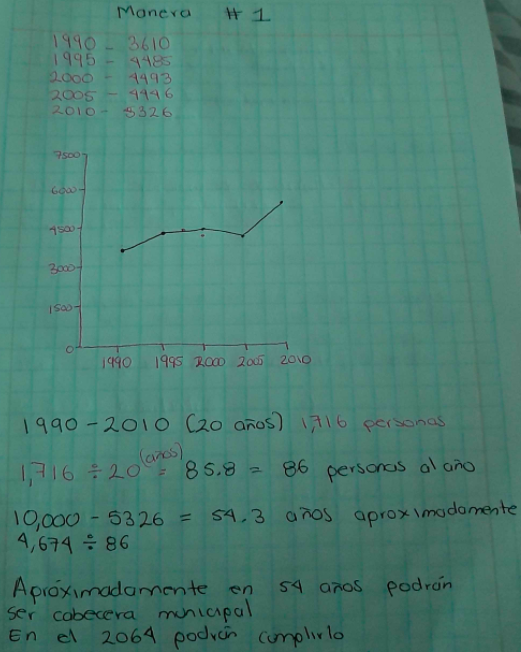 Manera # 1
1990 - 3610
1995 - 4485
2000 - 4493
2005 - 4446
2010 - 5326
7500
6000
4500
3000
1500
0
1990 1995 2000 2005 2010
1990 - 2010 (20 años) 1,716 personas
1,716 ÷ 20 (años) = 85.8 = 86 personas al año
10,000 - 5326 = 54.3 años aproximadamente
4,674 ÷ 86
Apróximadamente en 54 años podrán
ser cabecera municipal
En el 2064 podrán cumplirlo